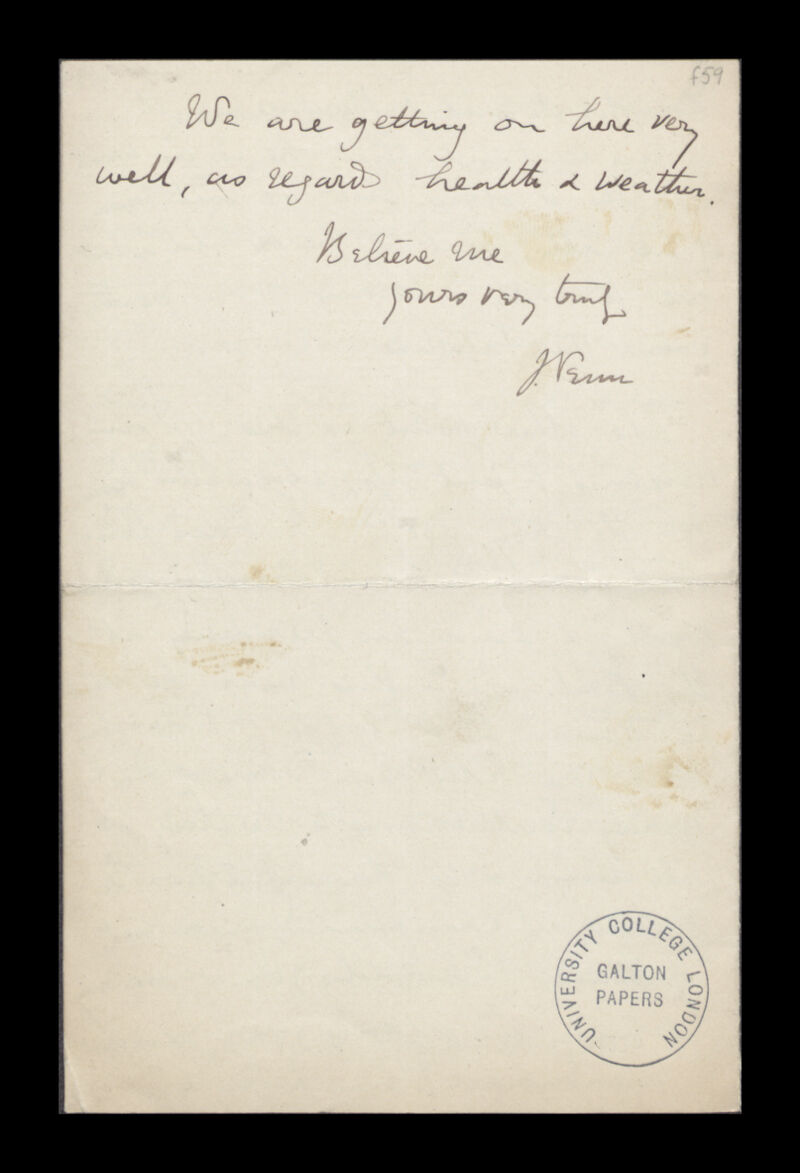 f59
We are getting on here very
well, as regards health & weather.
Believe me
yours very truly
J. Venn
UNIVERSITY COLLEGE LONDON
GALTON
PAPERS